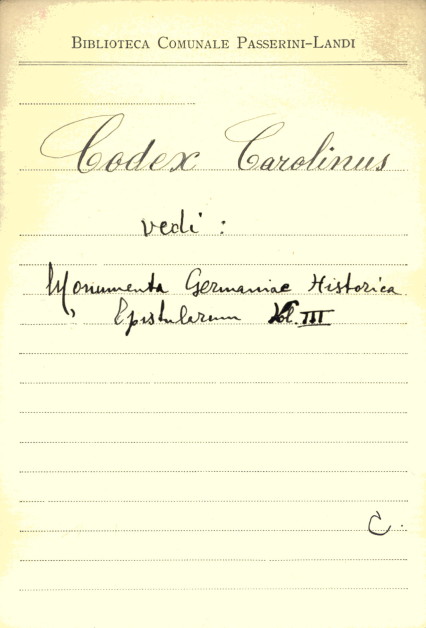 BIBLIOTECA COMUNALE PASSERINI-LANDI
Codex Carolinus
vedi :
Monumenta Germaniae Historica
Epistularum Vol. III
C.